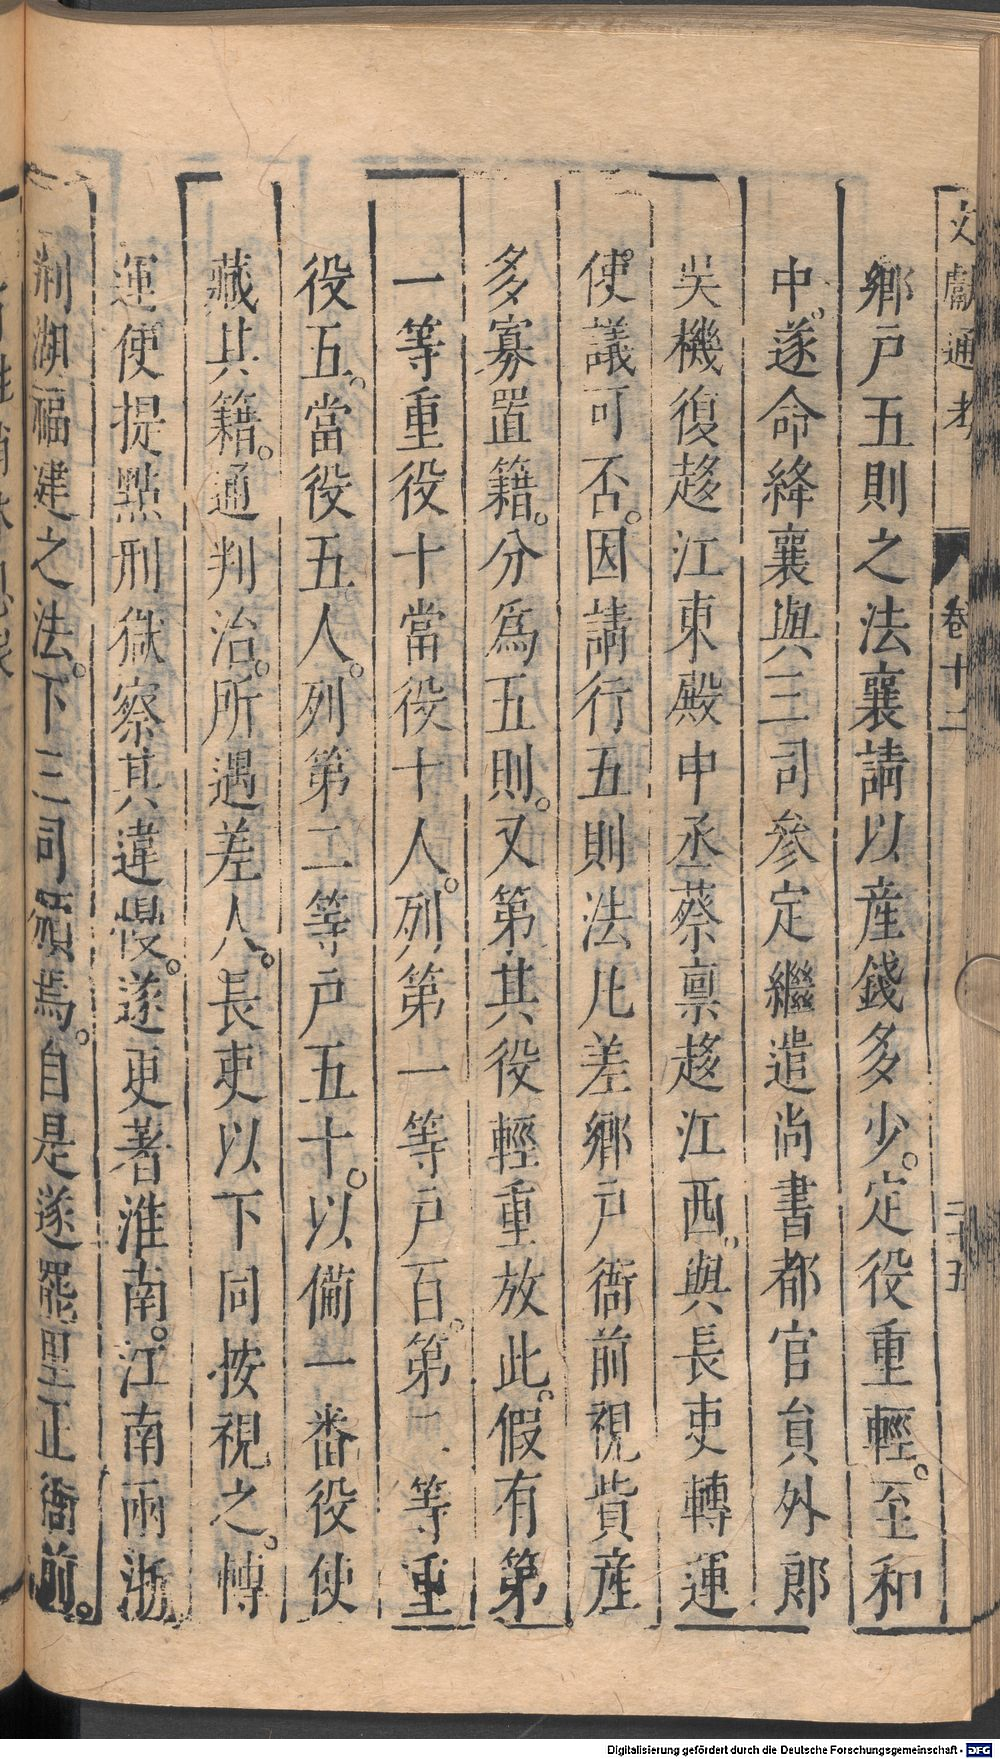 文獻通考 卷十二 二十五
鄉戸五則之法襄請以産錢多少。定役重輕。至和
中。遂命絳襄與三司參定繼遣尚書都官員外郎
吴機復趍江東殿中丞蔡禀趍江西。與長吏轉運
使。議可否。因請行五則法凡差鄉戸衙前視貲産
多寡置籍。分爲五則。又第其役輕重放此。假有第
一等重役十當役十人。列第一等戸百。第二等重
役五。當役五人。列第二等戸五十。以備一番役使
藏其籍。通判治。所遇差人。長吏以下同按視之。轉
運使提點刑獄察其違慢。遂更著淮南。江南兩浙
荆湖福建之法。下三司頒焉。自是遂罷里正衙前。
Digitalisierung gefördert durch die Deutsche Forschungsgemeinschaft - DFG